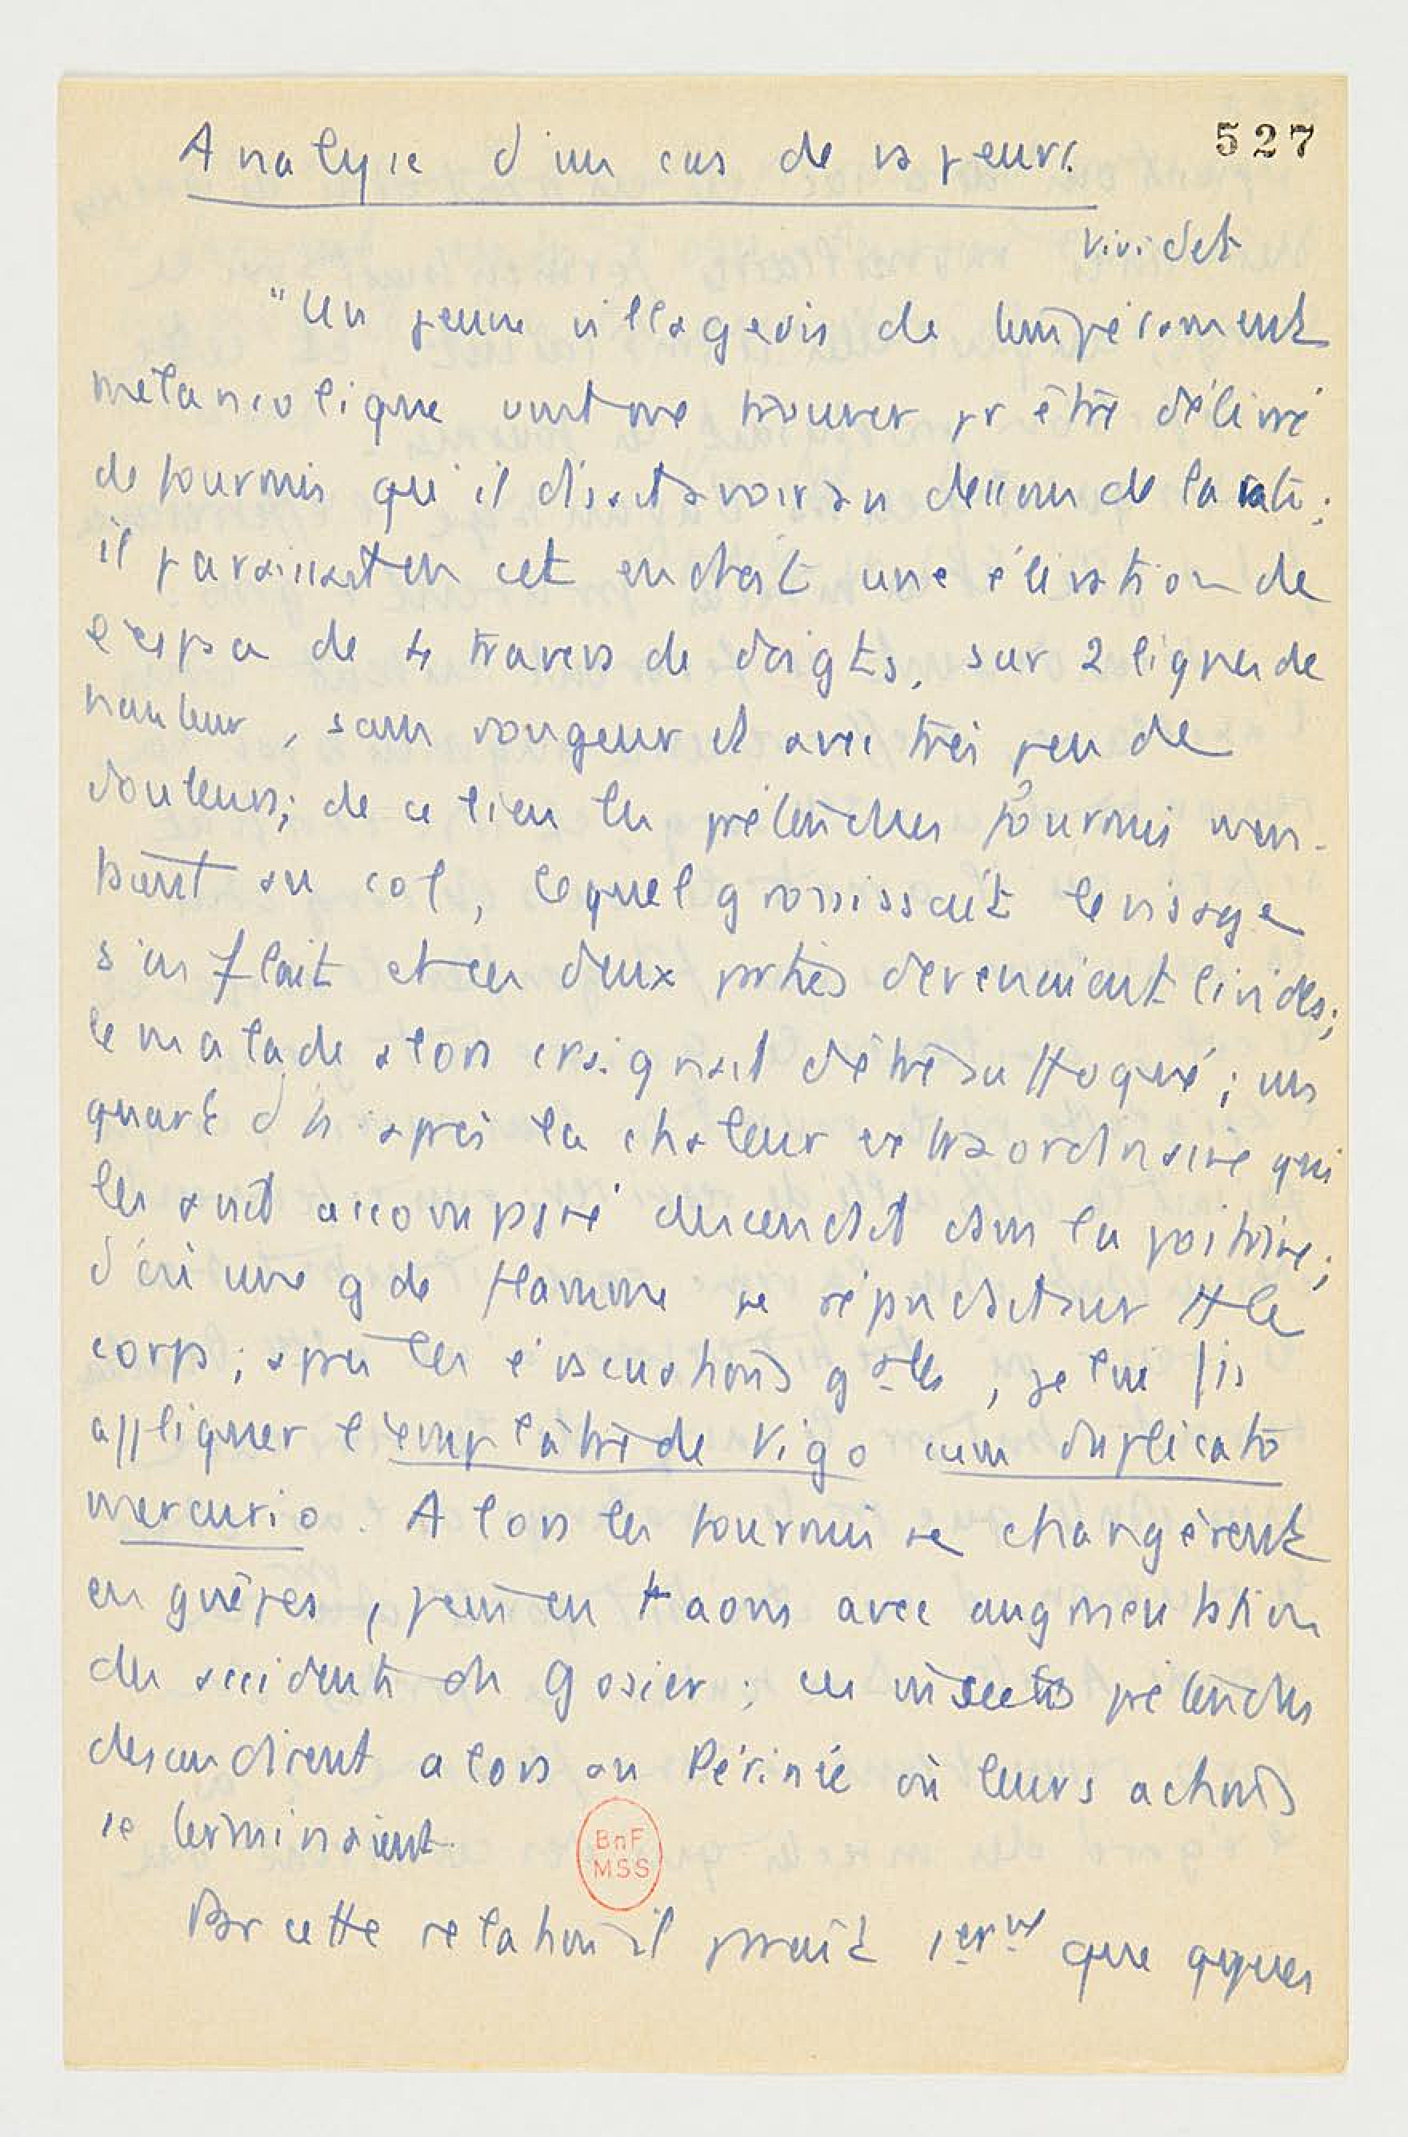 527
Analyse d'un cas de vapeurs.
Viridet
"Un jeune villageois de tempérament
mélancolique vint me trouver pr être délivré
de fourmis qu'il disait avoir au dessous de la rate ;
il paraissait en cet endroit une élévation de
l'espa de 4 travers de doigts, sur 2 lignes de
hauteur, sans rougeur et avec très peu de
douleurs ; de ce lieu les prétendues fourmis
au col, lequel grossissait le visage
s'enflait et ces deux parties devenaient livides ;
le malade alors craignait d'être suffoqué ; un
quart d'h après la chaleur extraordinaire qui
les avait accompagné descendait dans la poitrine ;
d'où une gde flamme se répandait sur tt le
corps ; après les évacuations gales, je lui fis
appliquer l'emplâtre de Vigo cum duplicato
mercurio. Alors les fourmis se changèrent
en guêpes, puis en taons avec augmentation
des accidents du gosier ; ces insectes prétendus
descendirent alors au Périnée où leurs actions
se terminaient.
BnF
MSS
Par cette relation il paraît 1erнt que qques